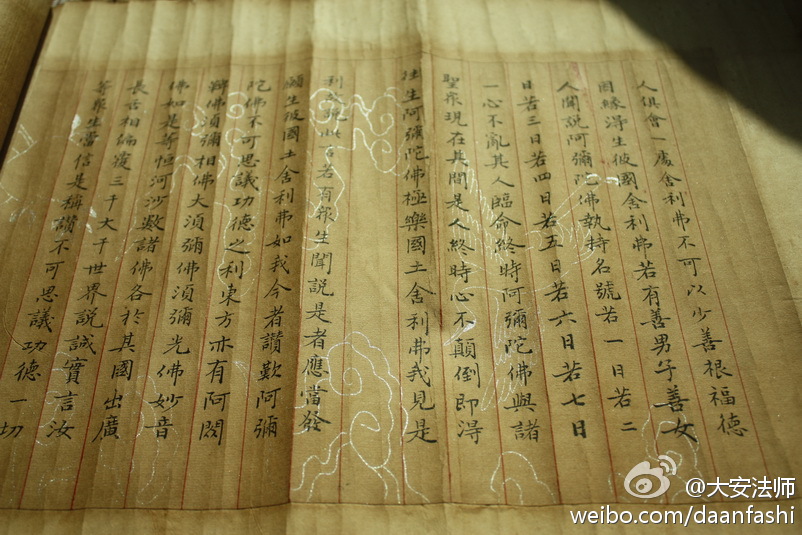 人俱會一處舍利弗不可以少善根福德
因緣淂生彼國舍利弗若有善男子善女
人聞說阿彌陀佛執持名號若一日若二
日若三日若四日若五日若六日若七日
一心不亂其人臨命終時阿彌陀佛與諸
聖眾現在其間是人終時心不顛倒即淂
往生阿彌陀佛極樂國土舍利弗我見是
利故說此言若有眾生聞說是者應當發
願生彼國土舍利弗如我今者讚歎阿彌
陀佛不可思議功德之利東方亦有阿閦
鞞佛須彌相佛大須彌佛須彌光佛妙音
佛如是等恒河沙數諸佛各於其國出廣
長舌相徧覆三千大千世界說誠實言汝
等眾生當信是稱讚不可思議功德一切
@大安法师
weibo.com/daanfashi